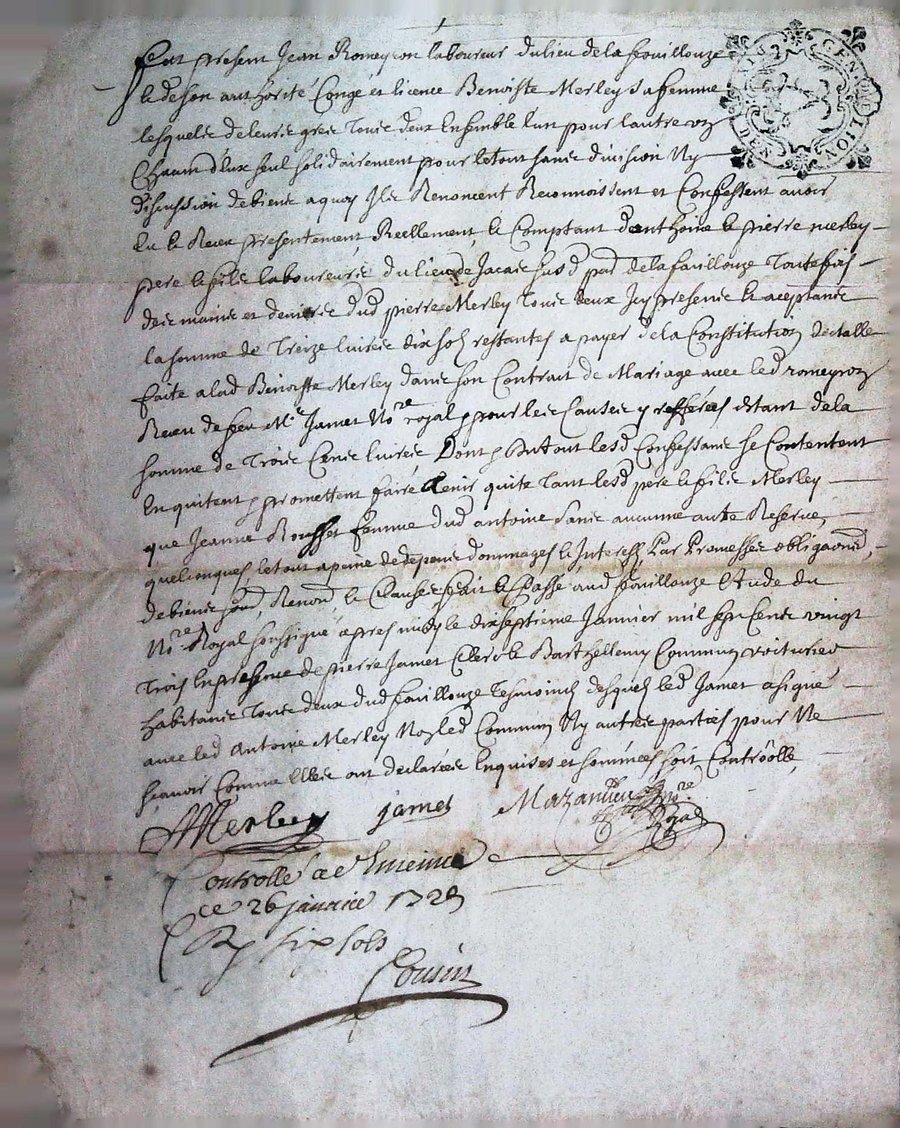 GEN DE LION
Fut present Jean Romeyron laboureur du lieu de la fouillouze
et de son authorité Congé et licence Benoiste Merley sa femme
lesquels de leurs grés Tous deux Ensemble lun pour lautre
Chacun d'Eux seul solidairement pour le tout sans division Ny
discussion de biens a quoy Ils Renoncent Reconnoissent et Confessent avoir
Eu et Receu presentement, Reellement et Comptant d'anthoine et pierre merley
pere et fils laboureurs du lieu de de la fouillouze Toutefois
des mains et deniers dud pierre Merley Tous deux Icy presens et aceptans
la somme de Treize livres dix sols restantes a payer de la Constitution
faite a lad Benoiste Merley dans son Contrat de Mariage avec led romeyron
Receu de feu Me Jamet Nore royal pour les Causes y refferées estant de la
somme de Trois Cens livres Dont Partout lesd Confessans se Contentent
En quitent promettent faire Tenir quite Tant lesd pere et fils Merley
que Jeanne Rousset femme dud antoine sans aucune autre Reserve,
quelconques, le tout a peine de tous depens dommages et Interests, Par Promesses obligaons,
de biens soud Renond et Clauses fait et Passé aud fouillouze Etude du
Nore Royal soussigné apres midy le dix septieme Janvier mil sept Cens vingt
Trois En presence de pierre Jamet Clerc et Barthellemy Commun voiturier
habitans Tous deux dud fouillouze Tesmoins desquels led Jamet a signé
avec led Antoine Merley Non led Commun Ny autres parties pour Ne
scavoir Comme Elles ont declarées Enquises et sommées soit Controolle
AMerley jamet Mazandieu nore Royal
Controllé a
ce 26 janvier
R six sols
Cousin